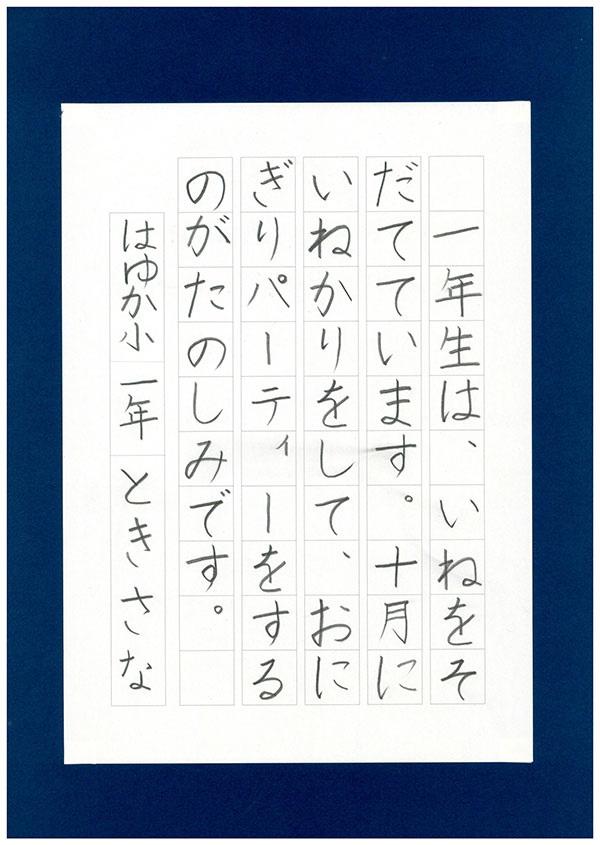 一年生は、いねをそ
だてています。十月に
いねかりをして、おに
ぎりパーティーをする
のがたのしみです。
はゆか小 一年 ときさな